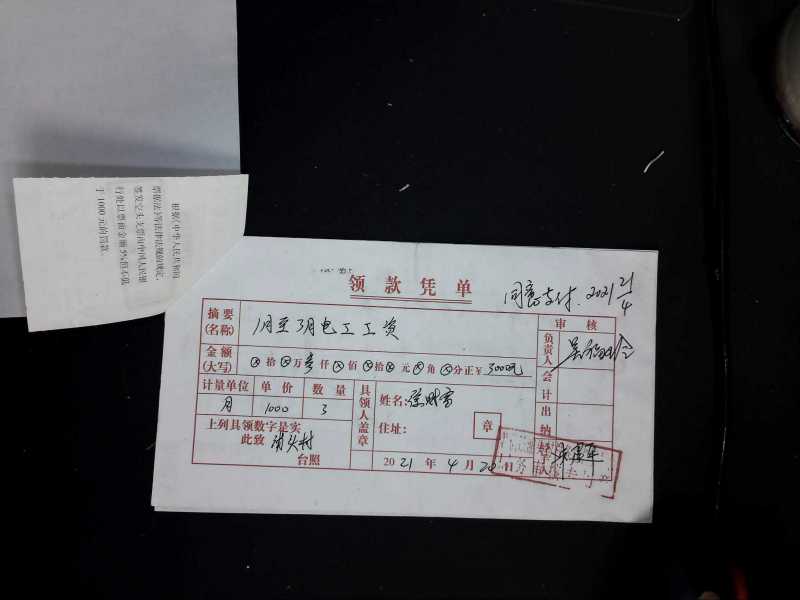 根据《中华人民共和国
票据法》等法律法规的规定,
签发空头支票由中国人民银
行处以票面金额5%但不低
于1000元的罚款。
领款凭单
同意支付. 2021 21/4
摘要(名称) 1月至3月电工工资
审核
负责人
金额(大写) ⊗拾⊗万叁仟⊗佰⊗拾⊗元⊗角⊗分正¥ 3000元
会计
计量单位 单价 数量
月 1000 3
具领人盖章
姓名:
住址:
章
出纳
上列具领数字是实
此致
台照
2021年4月20日
经手人